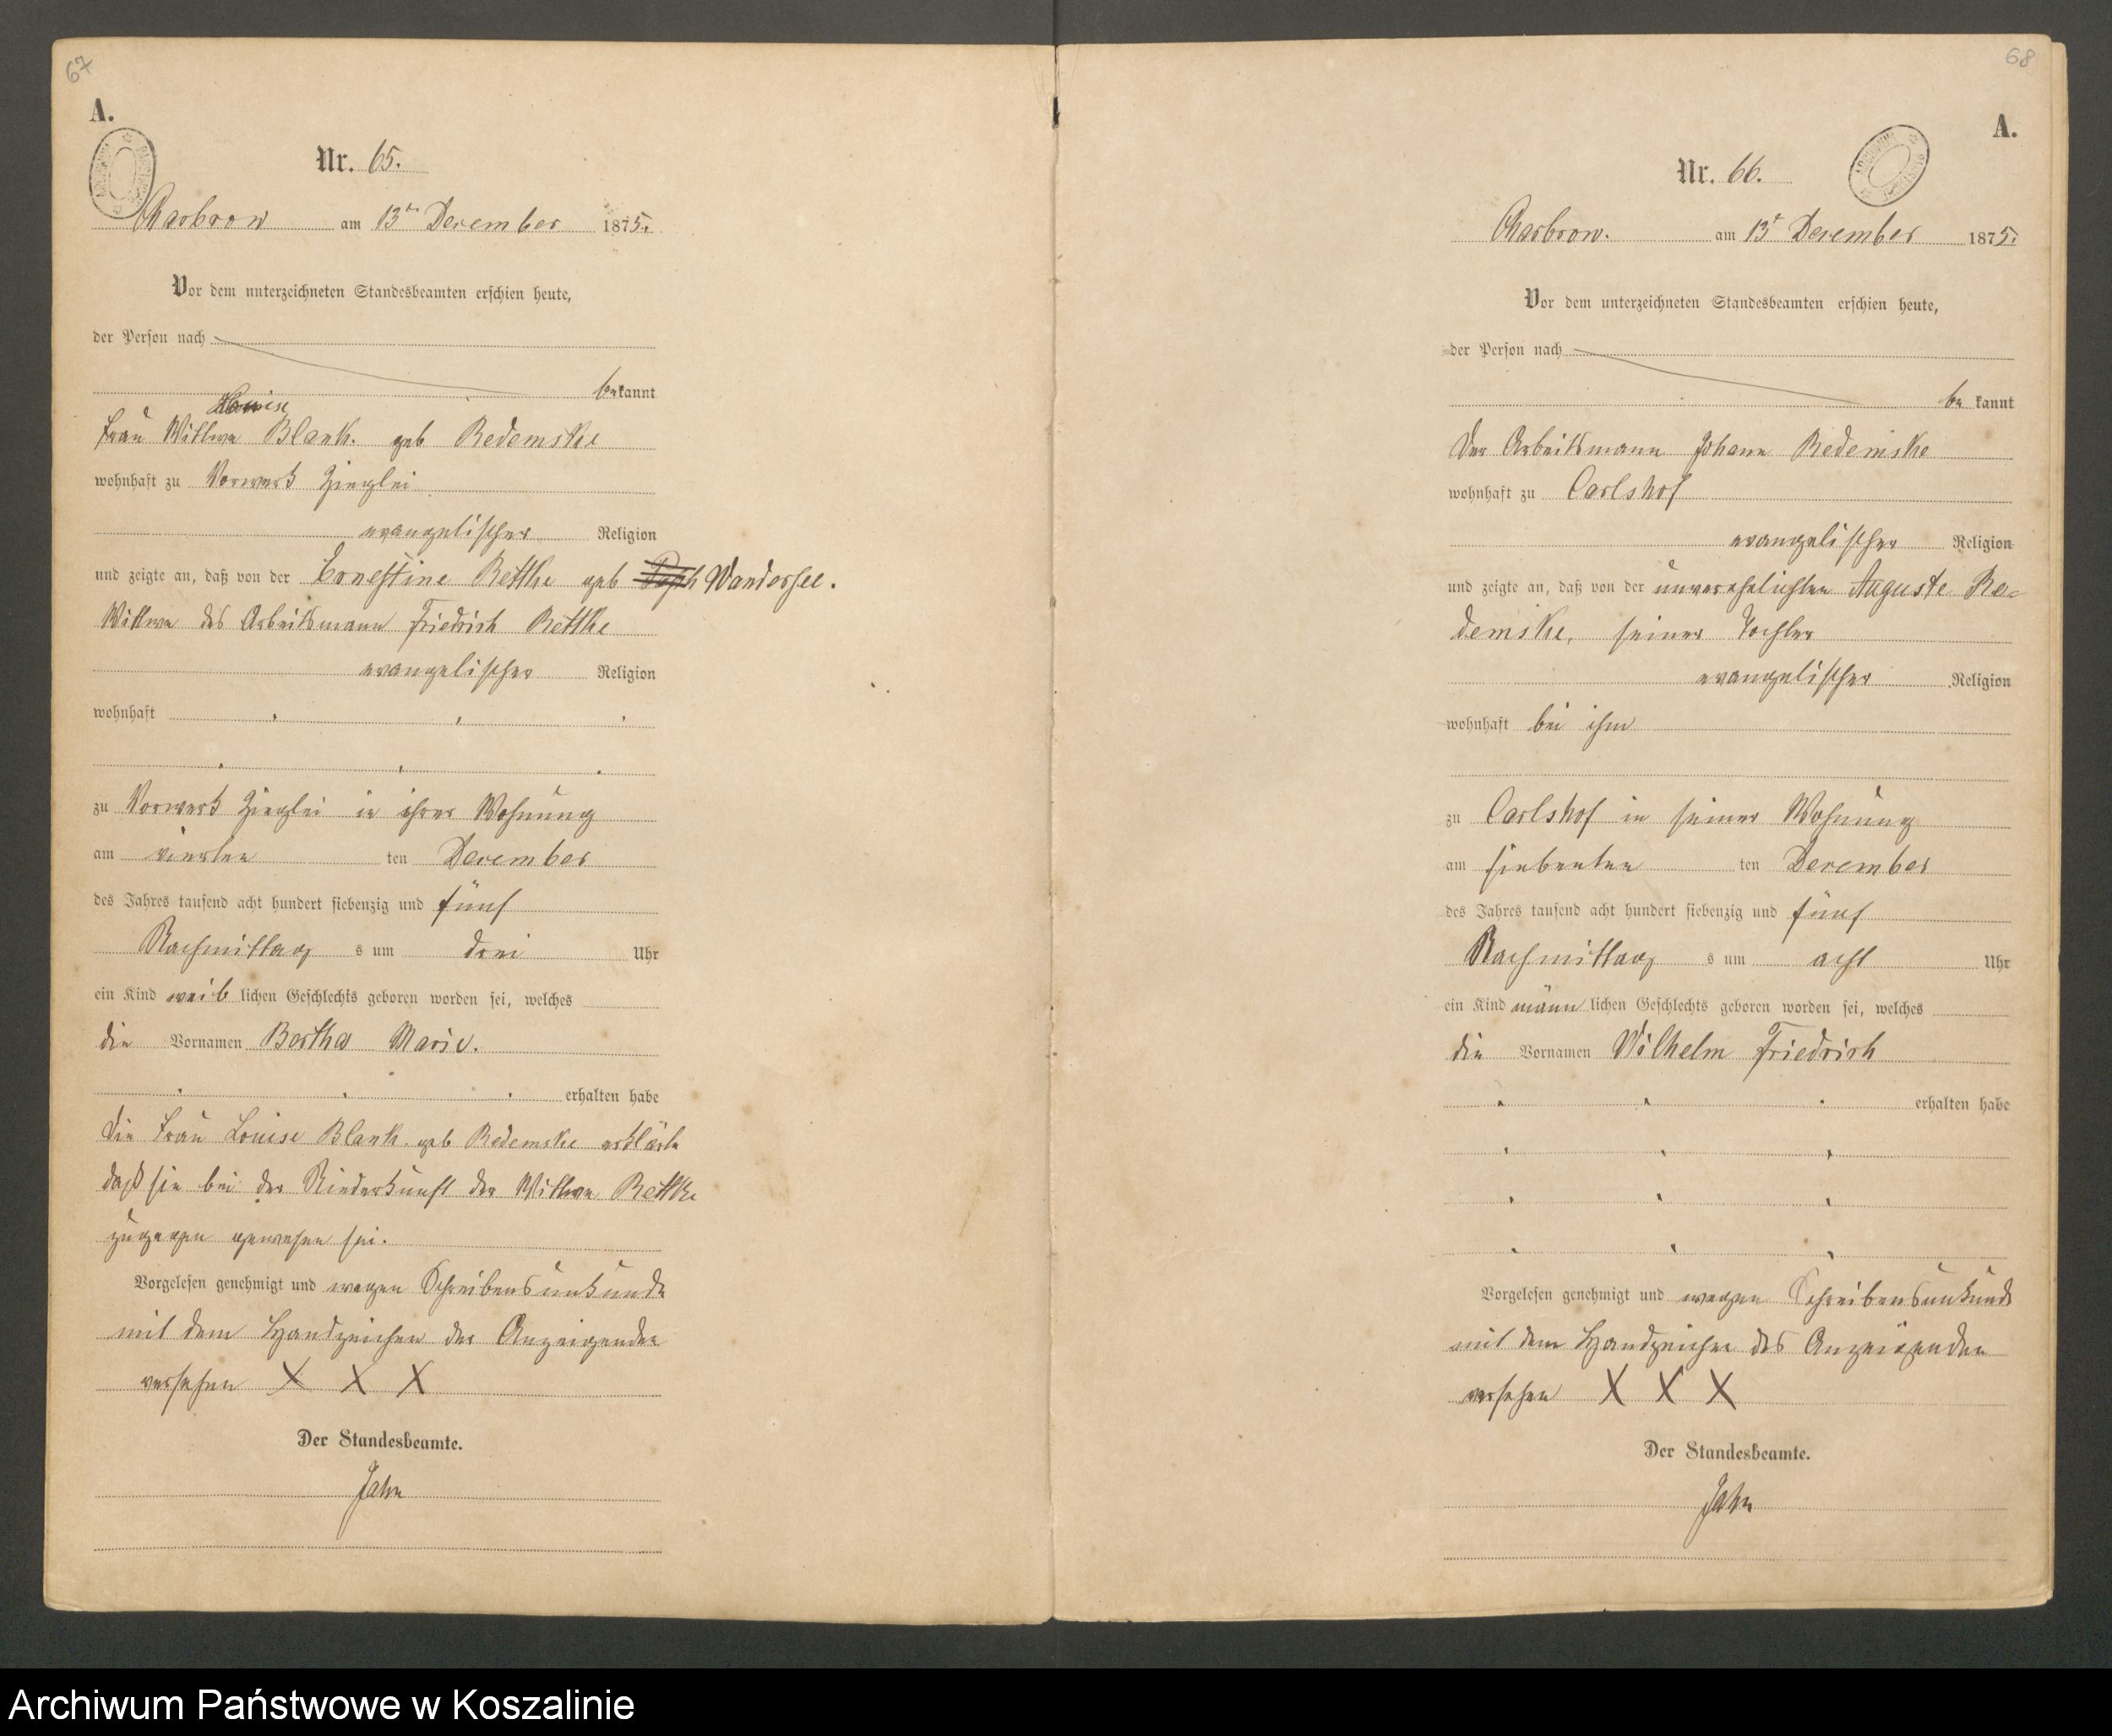 67
A.
Nr. 65.
Charbrow am 13t December 1875.
Vor dem unterzeichneten Standesbeamten erschien heute,
der Person nach
bekannt
Louise
Frau Wittwe Blank. geb Redemske
wohnhaft zu Vorwerk Zieglei
evangelischer Religion
und zeigte an, daß von der Ernestine Rettke geb Wandersee.
Wittwe des Arbeitsmann Friedrich Rettke
evangelischer Religion
wohnhaft
zu Vorwerk Zieglei in ihrer Wohnung
am vierten ten December
des Jahres tausend acht hundert siebenzig und fünf
Nachmittag s um drei Uhr
ein Kind weib lichen Geschlechts geboren worden sei, welches
die Vornamen Bertha Marie.
erhalten habe
Die Frau Louise Blank. geb Redemske erklärte
daß sie bei der Niederkunft der Wittwe Rettke
zugegen gewesen sei.
Vorgelesen genehmigt und wegen Schreibensunkunde
mit dem Handzeichen der Anzeigenden
versehen X X X
Der Standesbeamte.
Jahn
68
A.
Nr. 66.
Charbrow. am 13t December 1875.
Vor dem unterzeichneten Standesbeamten erschien heute,
der Person nach
be kannt
Der Arbeitsmann Johann Redemske
wohnhaft zu Carlshof
evangelischer Religion
und zeigte an, daß von der unverehelichten Auguste Re=
demske, seiner Tochter
evangelischer Religion
wohnhaft bei ihm
zu Carlshof in seiner Wohnung
am siebenten ten December
des Jahres tausend acht hundert siebenzig und fünf
Nachmittag s um acht Uhr
ein Kind männ lichen Geschlechts geboren worden sei, welches
die Vornamen Wilhelm Friedrich
erhalten habe
Vorgelesen genehmigt und wegen Schreibensunkunde
mit dem Handzeichen des Anzeigenden
versehen X X X
Der Standesbeamte.
Jahn
Archiwum Państwowe w Koszalinie